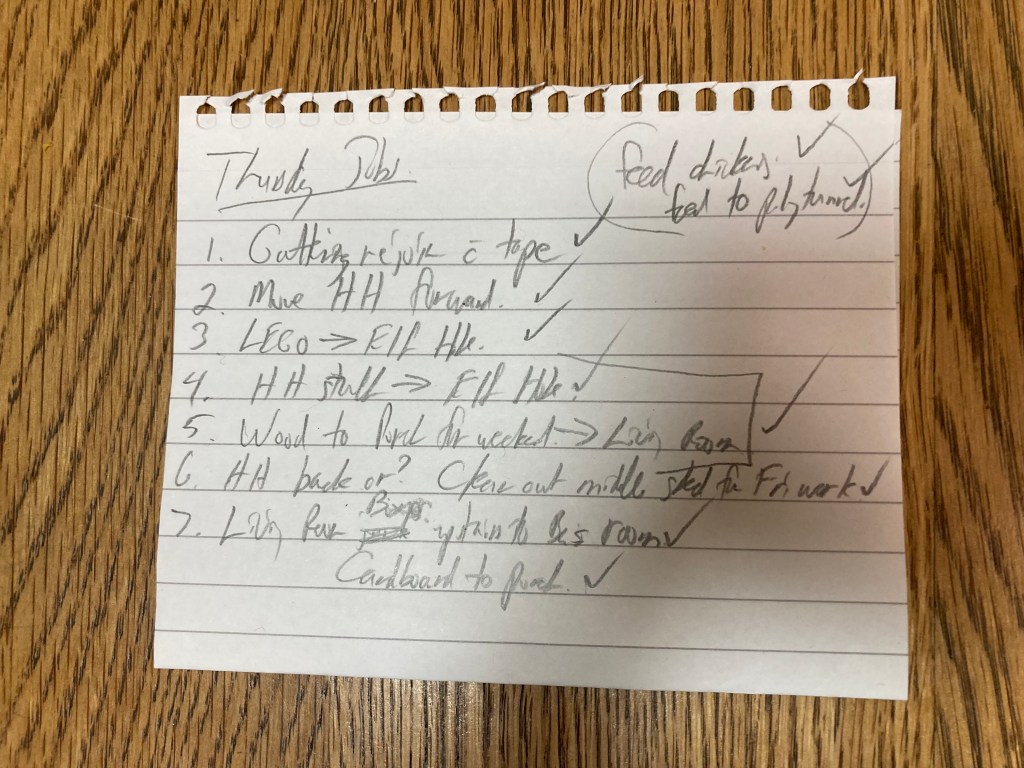 Thursday Jobs.
feed chickens.
feed to polytunnel.
1. Guttering rejoin c̄ tape
2. Move HH forward.
3 LEGO → Elf Hse.
4. HH stuff → Elf Hse.
5. Wood to Porch for weekend. → Living Room
6. HH back or? Clear out middle shed for Fri work
7. Living Room Boxes upstairs to room
Cardboard to porch.